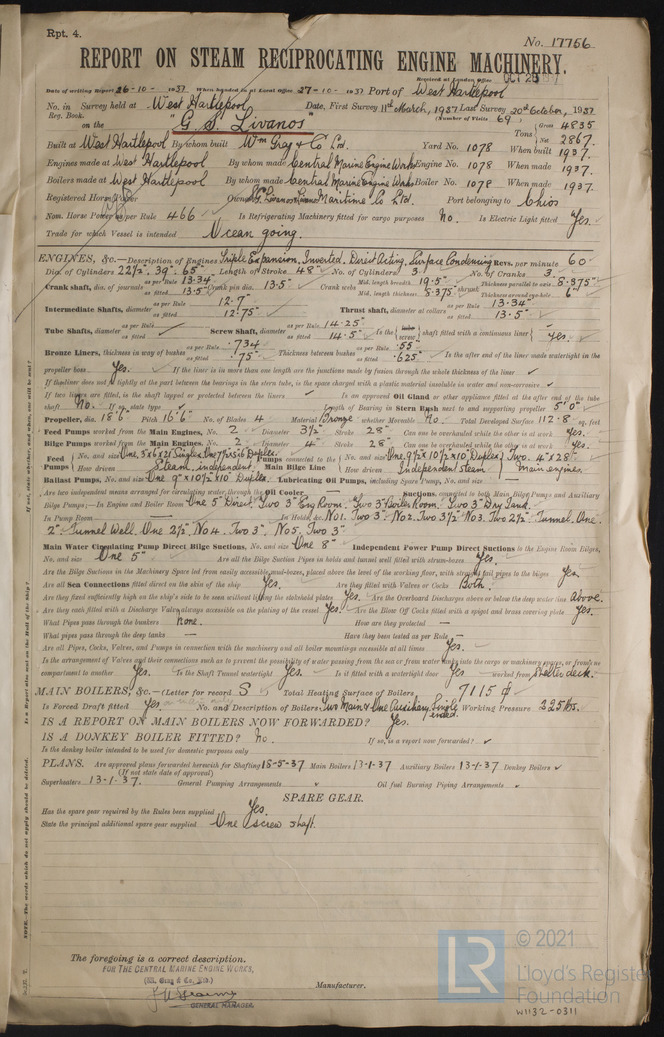 Rpt. 4.
No. 17756
REPORT ON STEAM RECIPROCATING ENGINE MACHINERY.
Received at London Office OCT 29 1937
Date of writing Report 26-10-1937 When handed in at Local Office 27-10-1937 Port of West Hartlepool
No. in Survey held at West Hartlepool Date, First Survey 11th March, 1937 Last Survey 20th October, 1937
Reg. Book. (Number of Visits 69)
on the "G. S. Livanos" Tons Gross 4835
Net 2867.
Built at West Hartlepool By whom built Wm Gray & Co Ltd. Yard No. 1078 When built 1937.
Engines made at West Hartlepool By whom made Central Marine Engine Works Engine No. 1078 When made 1937.
Boilers made at West Hartlepool By whom made Central Marine Engine Works Boiler No. 1078 When made 1937.
Registered Horse Power Owners Maritime Co Ltd. Port belonging to Chios
Nom. Horse Power as per Rule 466 Is Refrigerating Machinery fitted for cargo purposes No. Is Electric Light fitted Yes.
Trade for which Vessel is intended Ocean going.
ENGINES, &c.—Description of Engines Triple Expansion, Inverted, Direct Acting, Surface Condensing Revs. per minute 60
Dia. of Cylinders 22½" 39" 65" Length of Stroke 48" No. of Cylinders 3 No. of Cranks 3
Crank shaft, dia. of journals as per Rule 13.34 as fitted 13.5" Crank pin dia. 13.5" Crank webs Mid. length breadth 19.5" Mid. length thickness 8.375" shrunk Thickness parallel to axis 8.375" Thickness around eye-hole 6"
Intermediate Shafts, diameter as per Rule 12.7" as fitted 12.75" Thrust shaft, diameter at collars as per Rule 13.34" as fitted 13.5"
Tube Shafts, diameter as per Rule as fitted Screw Shaft, diameter as per Rule 14.25" as fitted 14.5" Is the tube screw shaft fitted with a continuous liner Yes.
Bronze Liners, thickness in way of bushes as per Rule .734 as fitted .75" Thickness between bushes as per Rule .55 as fitted .625" Is the after end of the liner made watertight in the
propeller boss Yes. If the liner is in more than one length are the junctions made by fusion through the whole thickness of the liner
If the liner does not fit tightly at the part between the bearings in the stern tube, is the space charged with a plastic material insoluble in water and non-corrosive
If two liners are fitted, is the shaft lapped or protected between the liners Is an approved Oil Gland or other appliance fitted at the after end of the tube
shaft No. If so, state type Length of Bearing in Stern Bush next to and supporting propeller 5' 0"
Propeller, dia. 18' 6" Pitch 16' 6" No. of Blades 4 Material Bronze whether Moveable No. Total Developed Surface 112.8 sq. feet
Feed Pumps worked from the Main Engines, No. 2 Diameter 3½" Stroke 28" Can one be overhauled while the other is at work Yes.
Bilge Pumps worked from the Main Engines, No. 2 Diameter 4" Stroke 28" Can one be overhauled while the other is at work Yes.
Feed Pumps No. and size How driven Steam, independent. Pumps connected to the Main Bilge Line No. and size One, 9½" x 10½" x 10" Duplex, Two. 4" x 28" How driven Independent Steam, Main engines.
Ballast Pumps, No. and size One 9" x 10½" x 10" Duplex Lubricating Oil Pumps, including Spare Pump, No. and size —
Are two independent means arranged for circulating water through the Oil Cooler — Suctions, connected to both Main Bilge Pumps and Auxiliary
Bilge Pumps:—In Engine and Boiler Room One 5" Direct, Two 3" Eng Room, Two 3" Boiler Room, Two 3" Dry Tank.
In Pump Room — In Holds, &c. No1. Two 3". No2. Two 3½" No3. Two 2½" Tunnel. One.
2" Tunnel Well. One 2½". No4. Two 3". No5. Two 3"
Main Water Circulating Pump Direct Bilge Suctions, No. and size One 8" Independent Power Pump Direct Suctions to the Engine Room Bilges,
No. and size One 5" Are all the Bilge Suction Pipes in holds and tunnel well fitted with strum-boxes Yes.
Are the Bilge Suctions in the Machinery Space led from easily accessible mud-boxes, placed above the level of the working floor, with straight tail pipes to the bilges Yes.
Are all Sea Connections fitted direct on the skin of the ship Yes. Are they fitted with Valves or Cocks Both.
Are they fixed sufficiently high on the ship's side to be seen without lifting the stokehold plates Yes. Are the Overboard Discharges above or below the deep water line Above.
Are they each fitted with a Discharge Valve always accessible on the plating of the vessel Yes. Are the Blow Off Cocks fitted with a spigot and brass covering plate Yes.
What Pipes pass through the bunkers None. How are they protected —
What pipes pass through the deep tanks — Have they been tested as per Rule —
Are all Pipes, Cocks, Valves, and Pumps in connection with the machinery and all boiler mountings accessible at all times Yes.
Is the arrangement of Valves and their connections such as to prevent the possibility of water passing from the sea or from water tanks into the cargo or machinery spaces, or from one
compartment to another Yes. Is the Shaft Tunnel watertight Yes. Is it fitted with a watertight door Yes worked from Shelter deck.
MAIN BOILERS, &c.—(Letter for record S) Total Heating Surface of Boilers 7115
Is Forced Draft fitted Yes. No. and Description of Boilers Two Main & One Auxiliary, Single ended. Working Pressure 225 lbs.
IS A REPORT ON MAIN BOILERS NOW FORWARDED? Yes.
IS A DONKEY BOILER FITTED? No. If so, is a report now forwarded?
Is the donkey boiler intended to be used for domestic purposes only
PLANS. Are approved plans forwarded herewith for Shafting 18-5-37 Main Boilers 13-1-37 Auxiliary Boilers 13-1-37 Donkey Boilers
(If not state date of approval)
Superheaters 13-1-37. General Pumping Arrangements Oil fuel Burning Piping Arrangements
SPARE GEAR.
Has the spare gear required by the Rules been supplied Yes.
State the principal additional spare gear supplied One screw shaft.
The foregoing is a correct description.
FOR THE CENTRAL MARINE ENGINE WORKS,
(Wm. Gray & Co. Ltd.)
GENERAL MANAGER.
Manufacturer.
LR
© 2021
Lloyd's Register
Foundation
W1132-0311